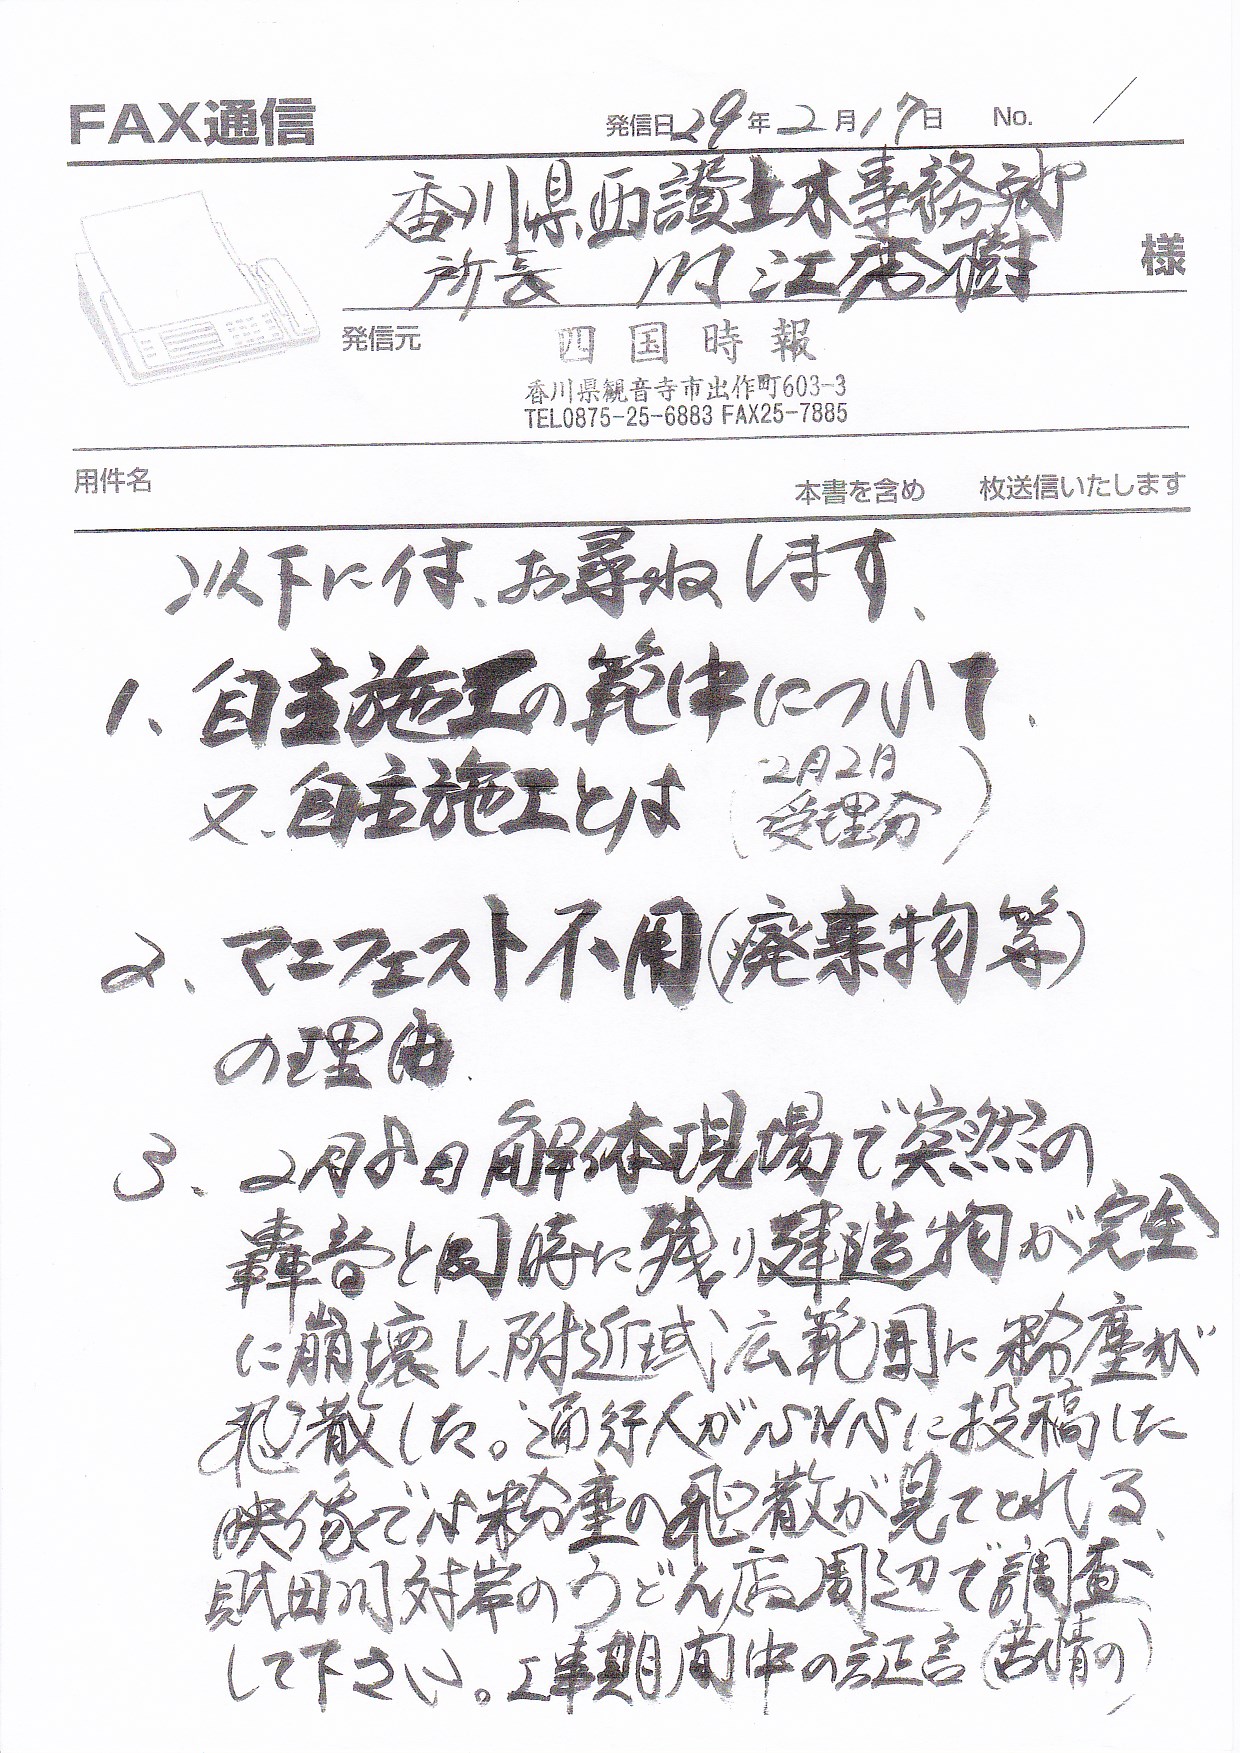 FAX通信
発信日 29年 2月 17日 No. 1
香川県西讃土木事務所
所長 川江秀樹 様
発信元 四国時報
香川県観音寺市出作町603-3
TEL0875-25-6883 FAX25-7885
用件名 本書を含め 枚送信いたします
以下に付、お尋ねします、
1、自主施工の範中について、
又、自主施工とは (2月2日
受理分)
2、マニフェスト不用(廃棄物等)
の理由、
3、2月8日解体現場で突然の
轟音と同時に残り建造物が完全
に崩壊し、附近域、広範囲に粉塵が
飛散した。通行人がSNSに投稿した
映像では粉塵の飛散が見てとれる、
財田川対岸のうどん店周辺で調査
して下さい。工事期間中の証言(苦情の)